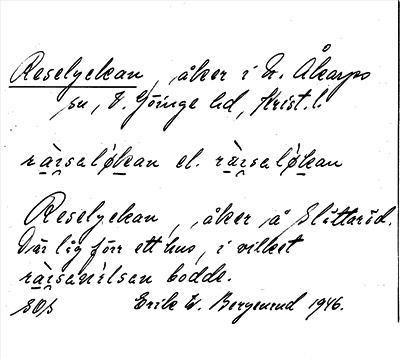 Reselyckan, åker i N. Åkarps
sn, V. Göinge hd, Krist. l.
ràisaløkan el. ràisaløkan
Reselyckan, åker å Slättaröd.
Där låg förr ett hus, i vilket
ràisanilsan bodde.
Erik W. Bergenrud 1946.